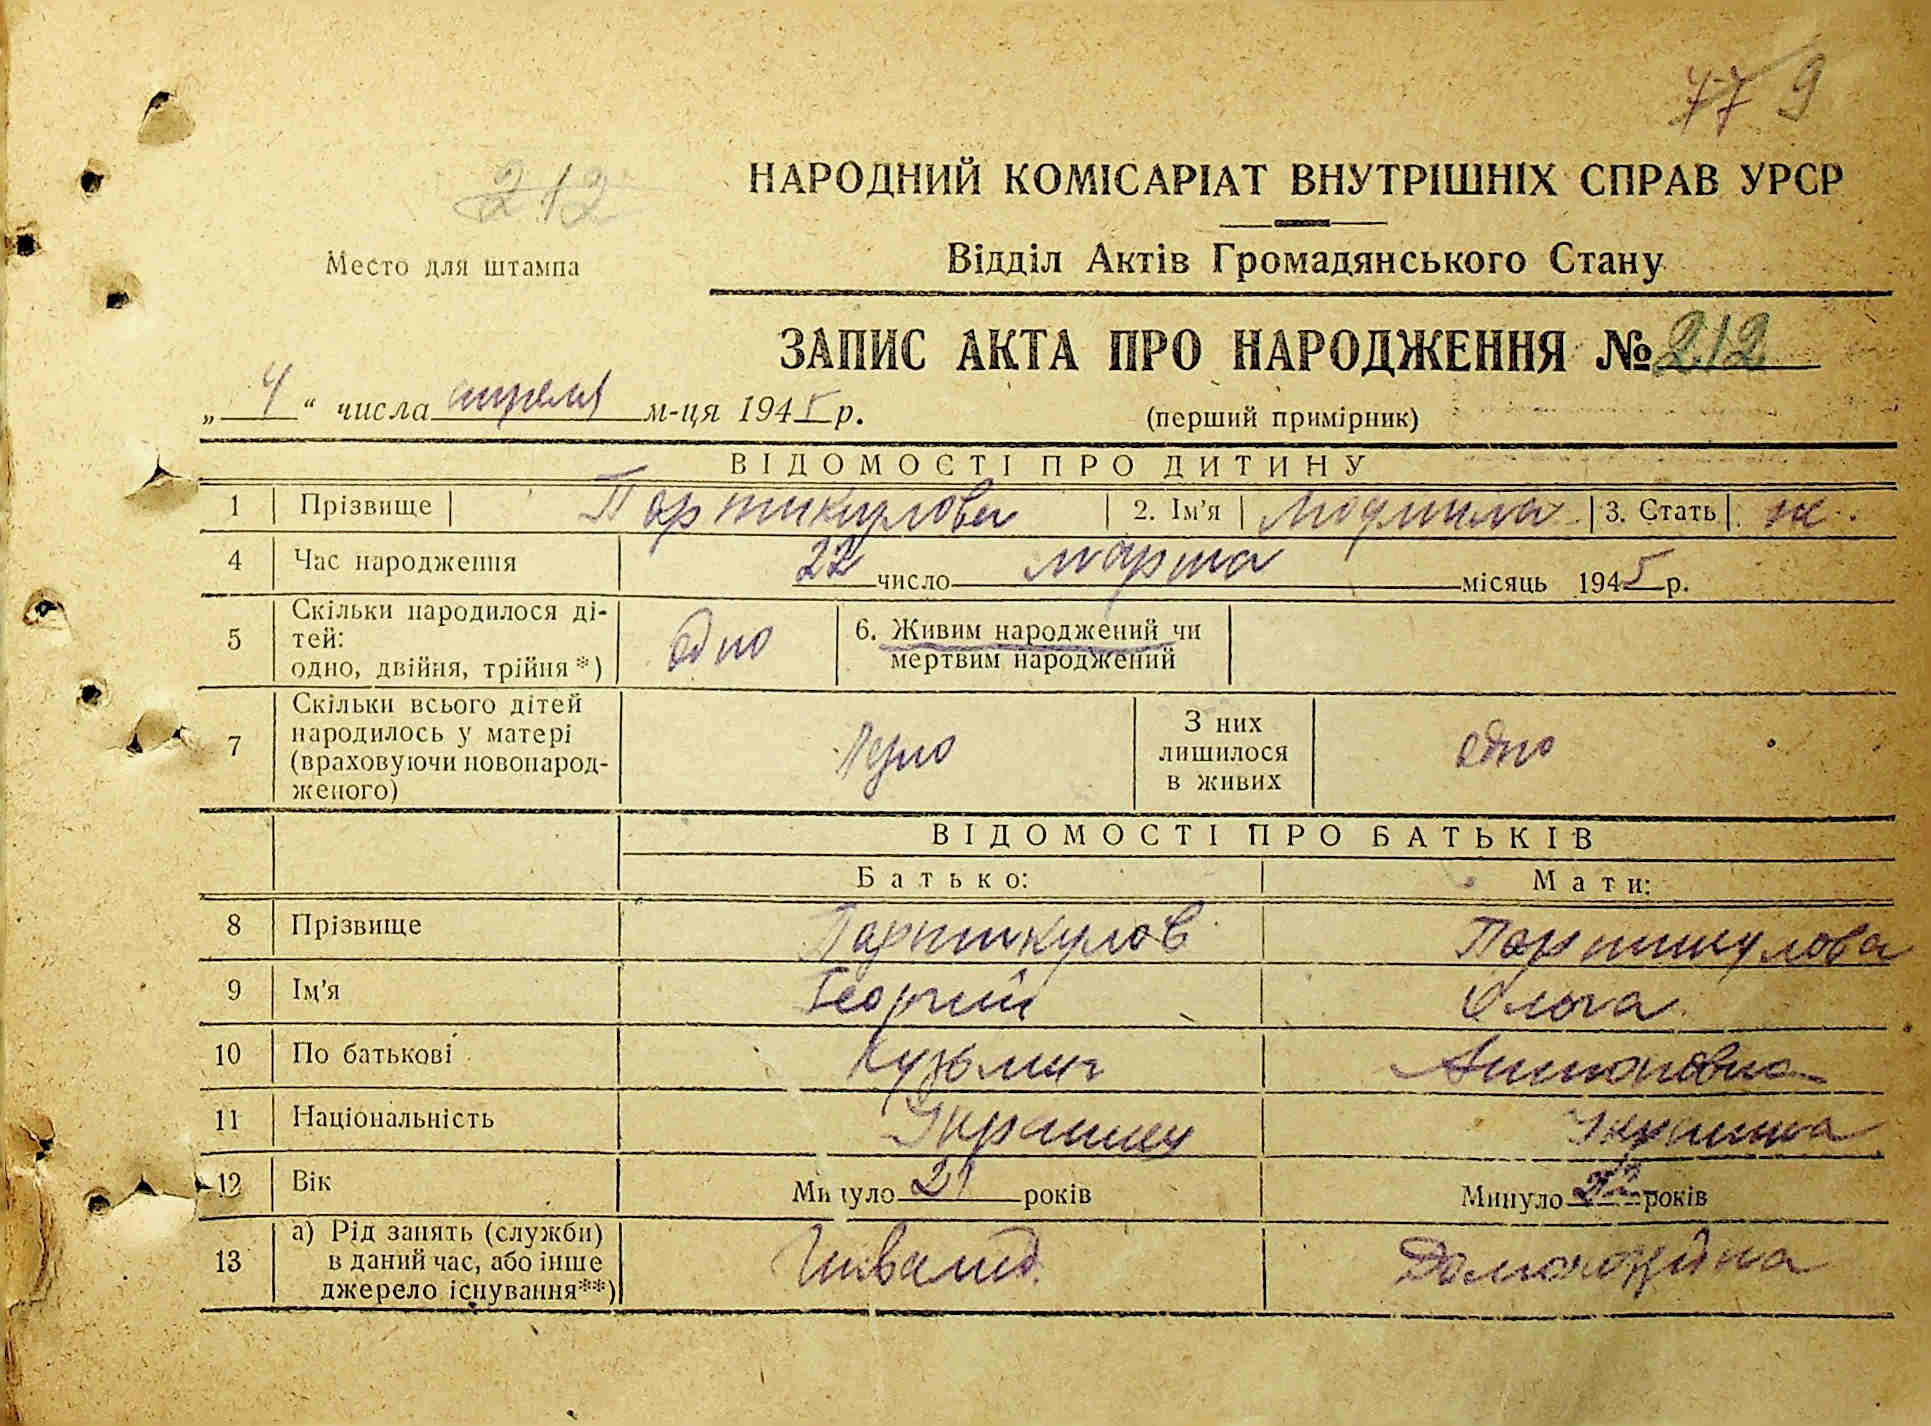 77 9
212
НАРОДНИЙ КОМІСАРІАТ ВНУТРІШНІХ СПРАВ УРСР
Место для штампа
Відділ Актів Громадянського Стану
ЗАПИС АКТА ПРО НАРОДЖЕННЯ № 212
„ 4 “ числа апреля м-ця 1945 р.
(перший примірник)
ВІДОМОСТІ ПРО ДИТИНУ
1 Прізвище Партикулова 2. Ім'я Людмила 3. Стать ж.
4 Час народження 22 число марта місяць 1945 р.
5 Скільки народилося ді-
тей:
одно, двійня, трійня *) одно
6. Живим народжений чи
мертвим народжений
7 Скільки всього дітей
народилось у матері
(враховуючи новонарод-
женого)
З них
лишилося
в живих
одно
ВІДОМОСТІ ПРО БАТЬКІВ
Батько: Мати:
8 Прізвище Партикулов Партикулова
9 Ім'я Георгий Ольга
10 По батькові Кузьмич Антоновна
11 Національність Украинец Украинка
12 Вік Минуло 21 років Минуло років
13 а) Рід занять (служби)
в даний час, або інше
джерело існування**) Инвалид Домохозяйка